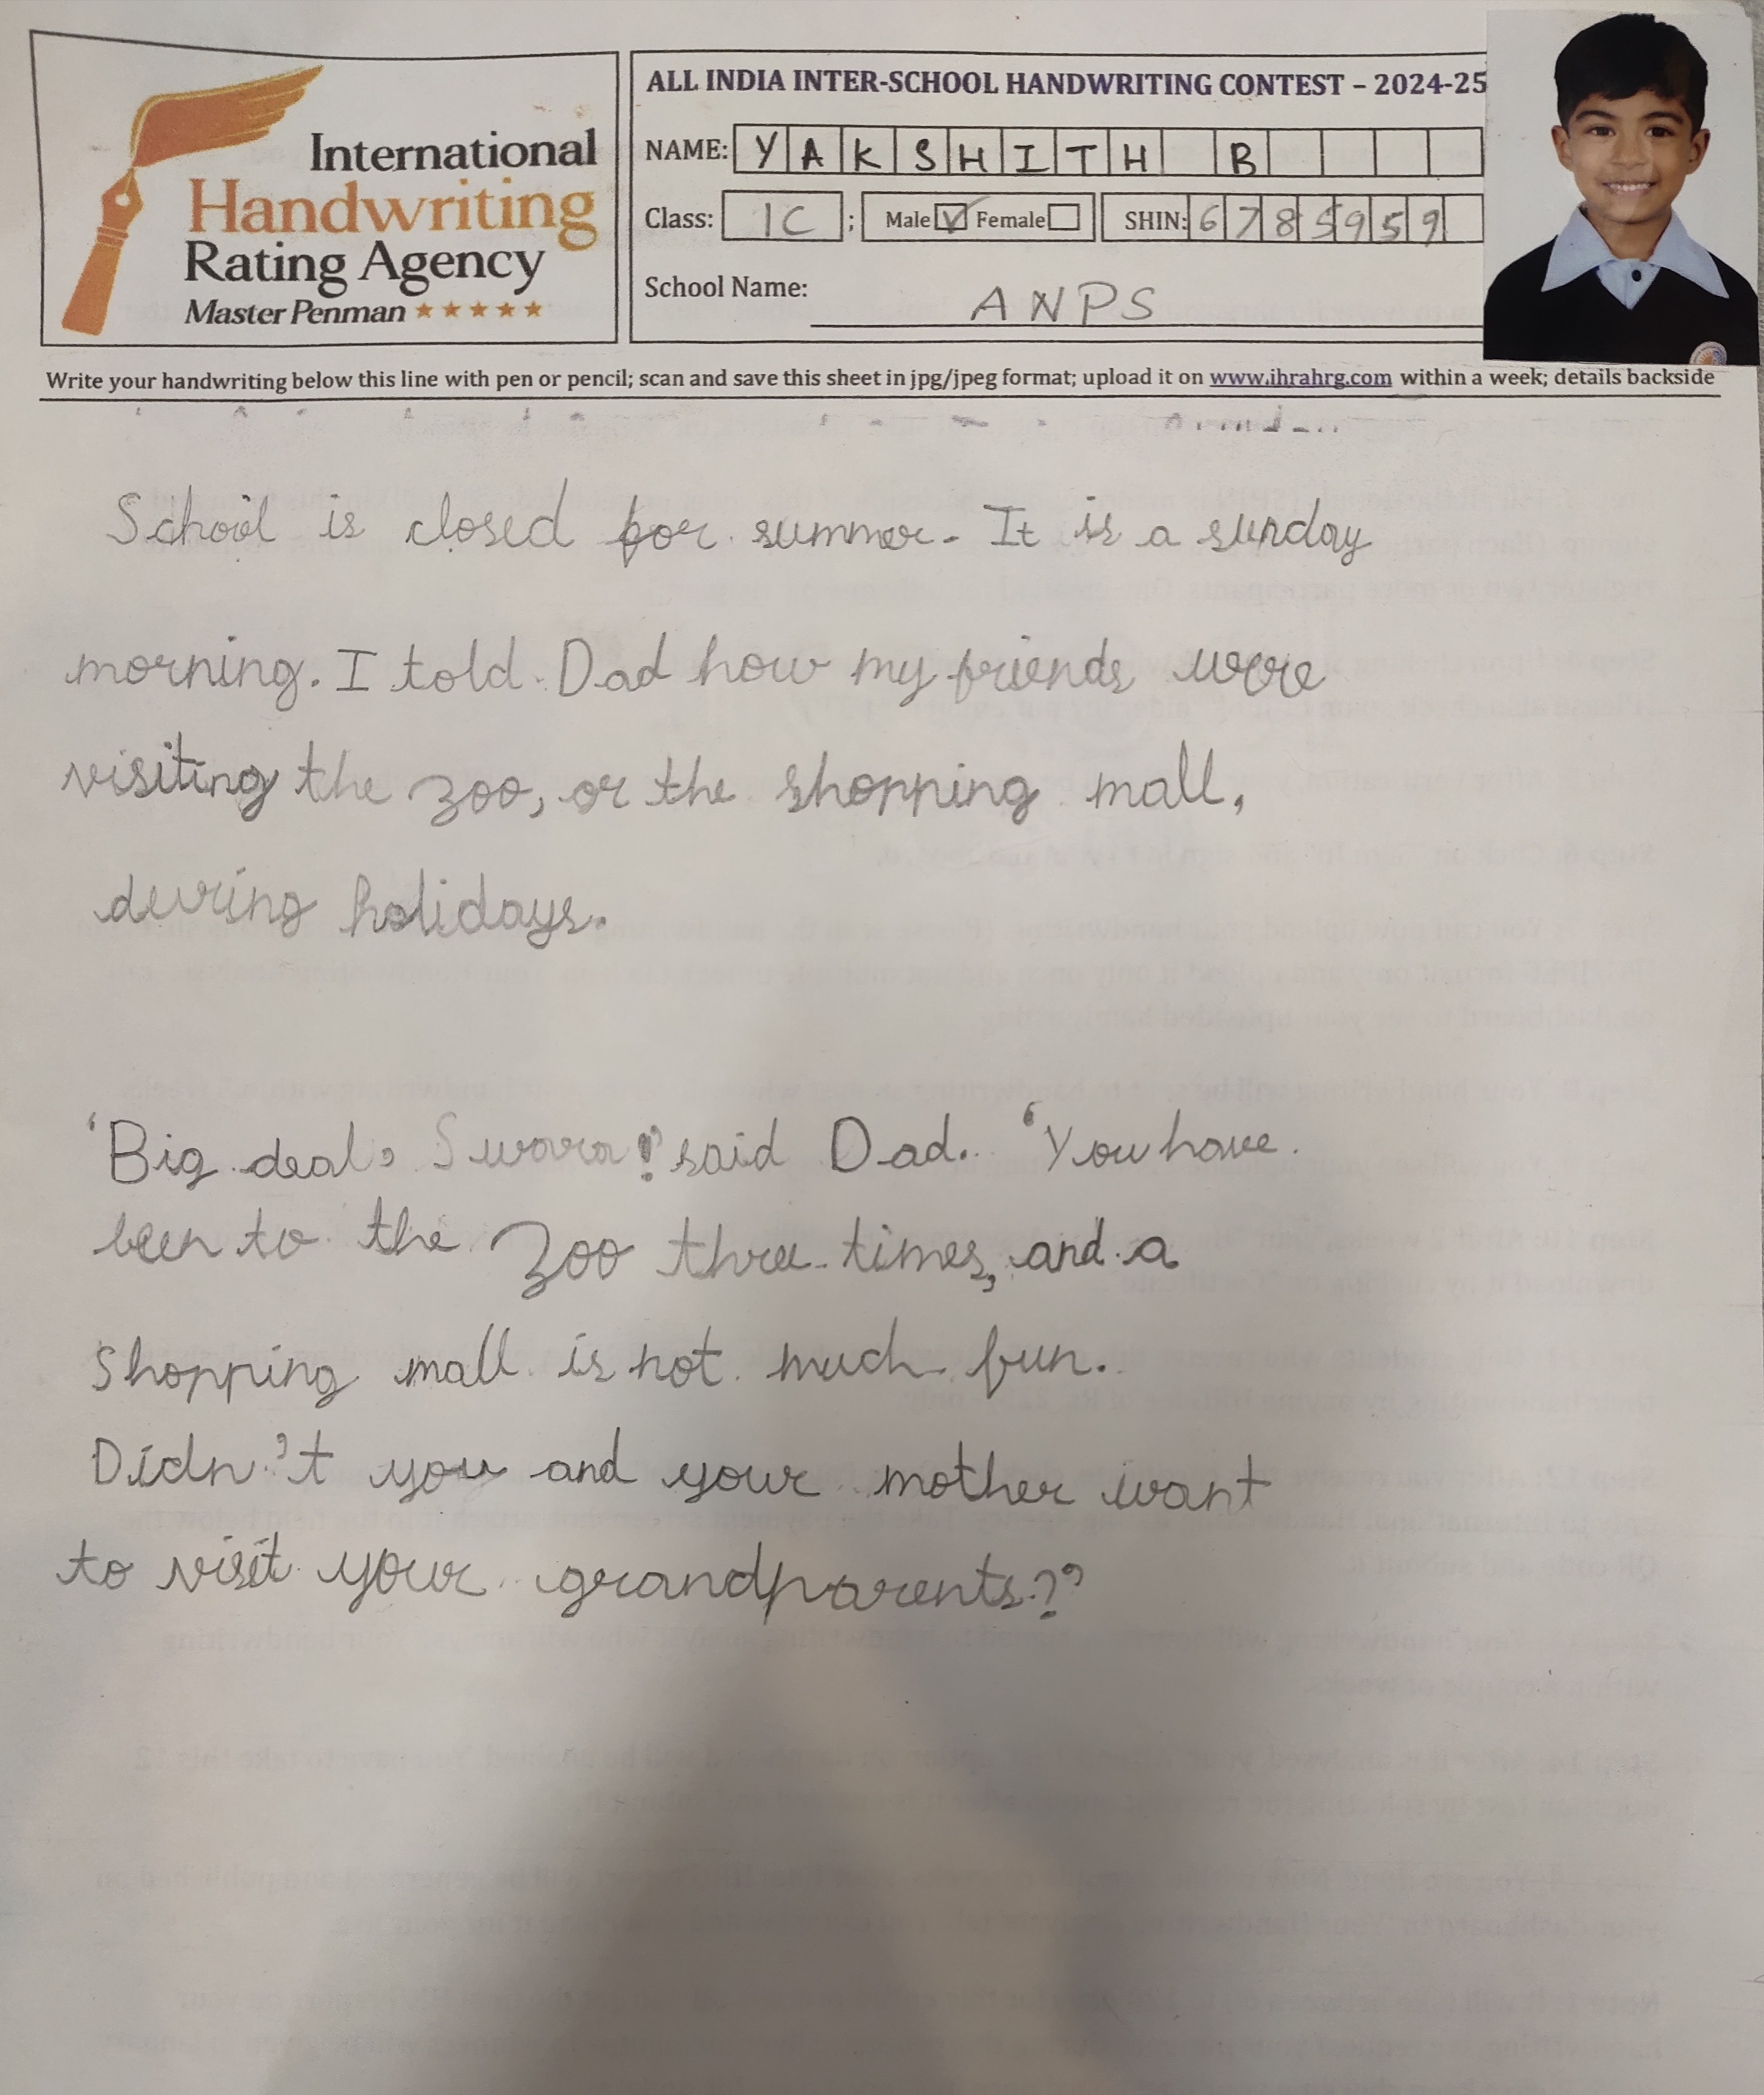 International
Handwriting
Rating Agency
Master Penman
ALL INDIA INTER-SCHOOL HANDWRITING CONTEST – 2024-25
NAME: YAKSHITH B
Class: 1C ; Male Female SHIN: 6785959
School Name: ANPS
Write your handwriting below this line with pen or pencil; scan and save this sheet in jpg/jpeg format; upload it on www.ihrahrg.com within a week; details backside
School is closed for summer. It is a sunday
morning. I told Dad how my friends were
visiting the zoo, or the shopping mall,
during holidays.
'Big deal, Swara!' said Dad. 'You have
been to the zoo three times, and a
shopping mall is not much fun.
Didn't you and your mother want
to visit your grandparents?'